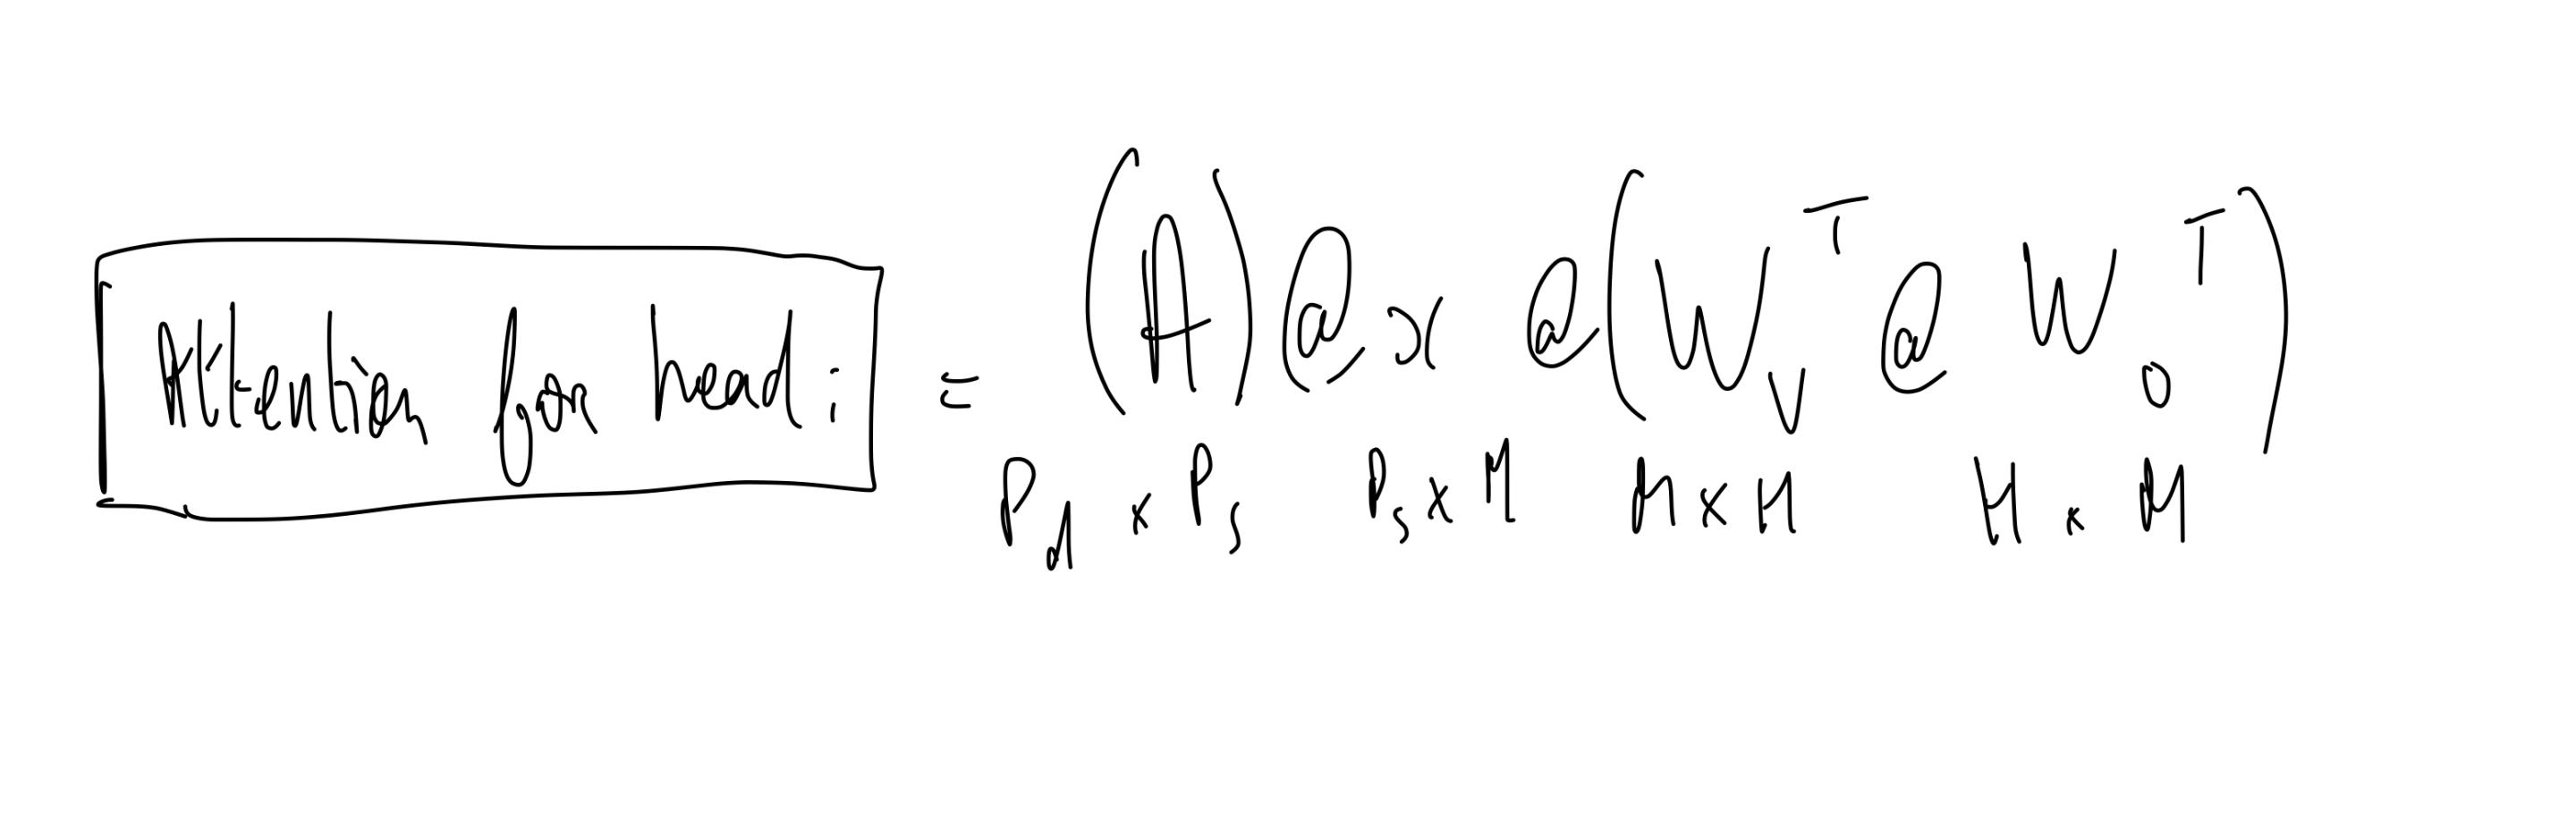 Attention for head i = (A) @ x @ (W_V^T @ W_O^T)
P_d x P_s P_s x M M x H H x M